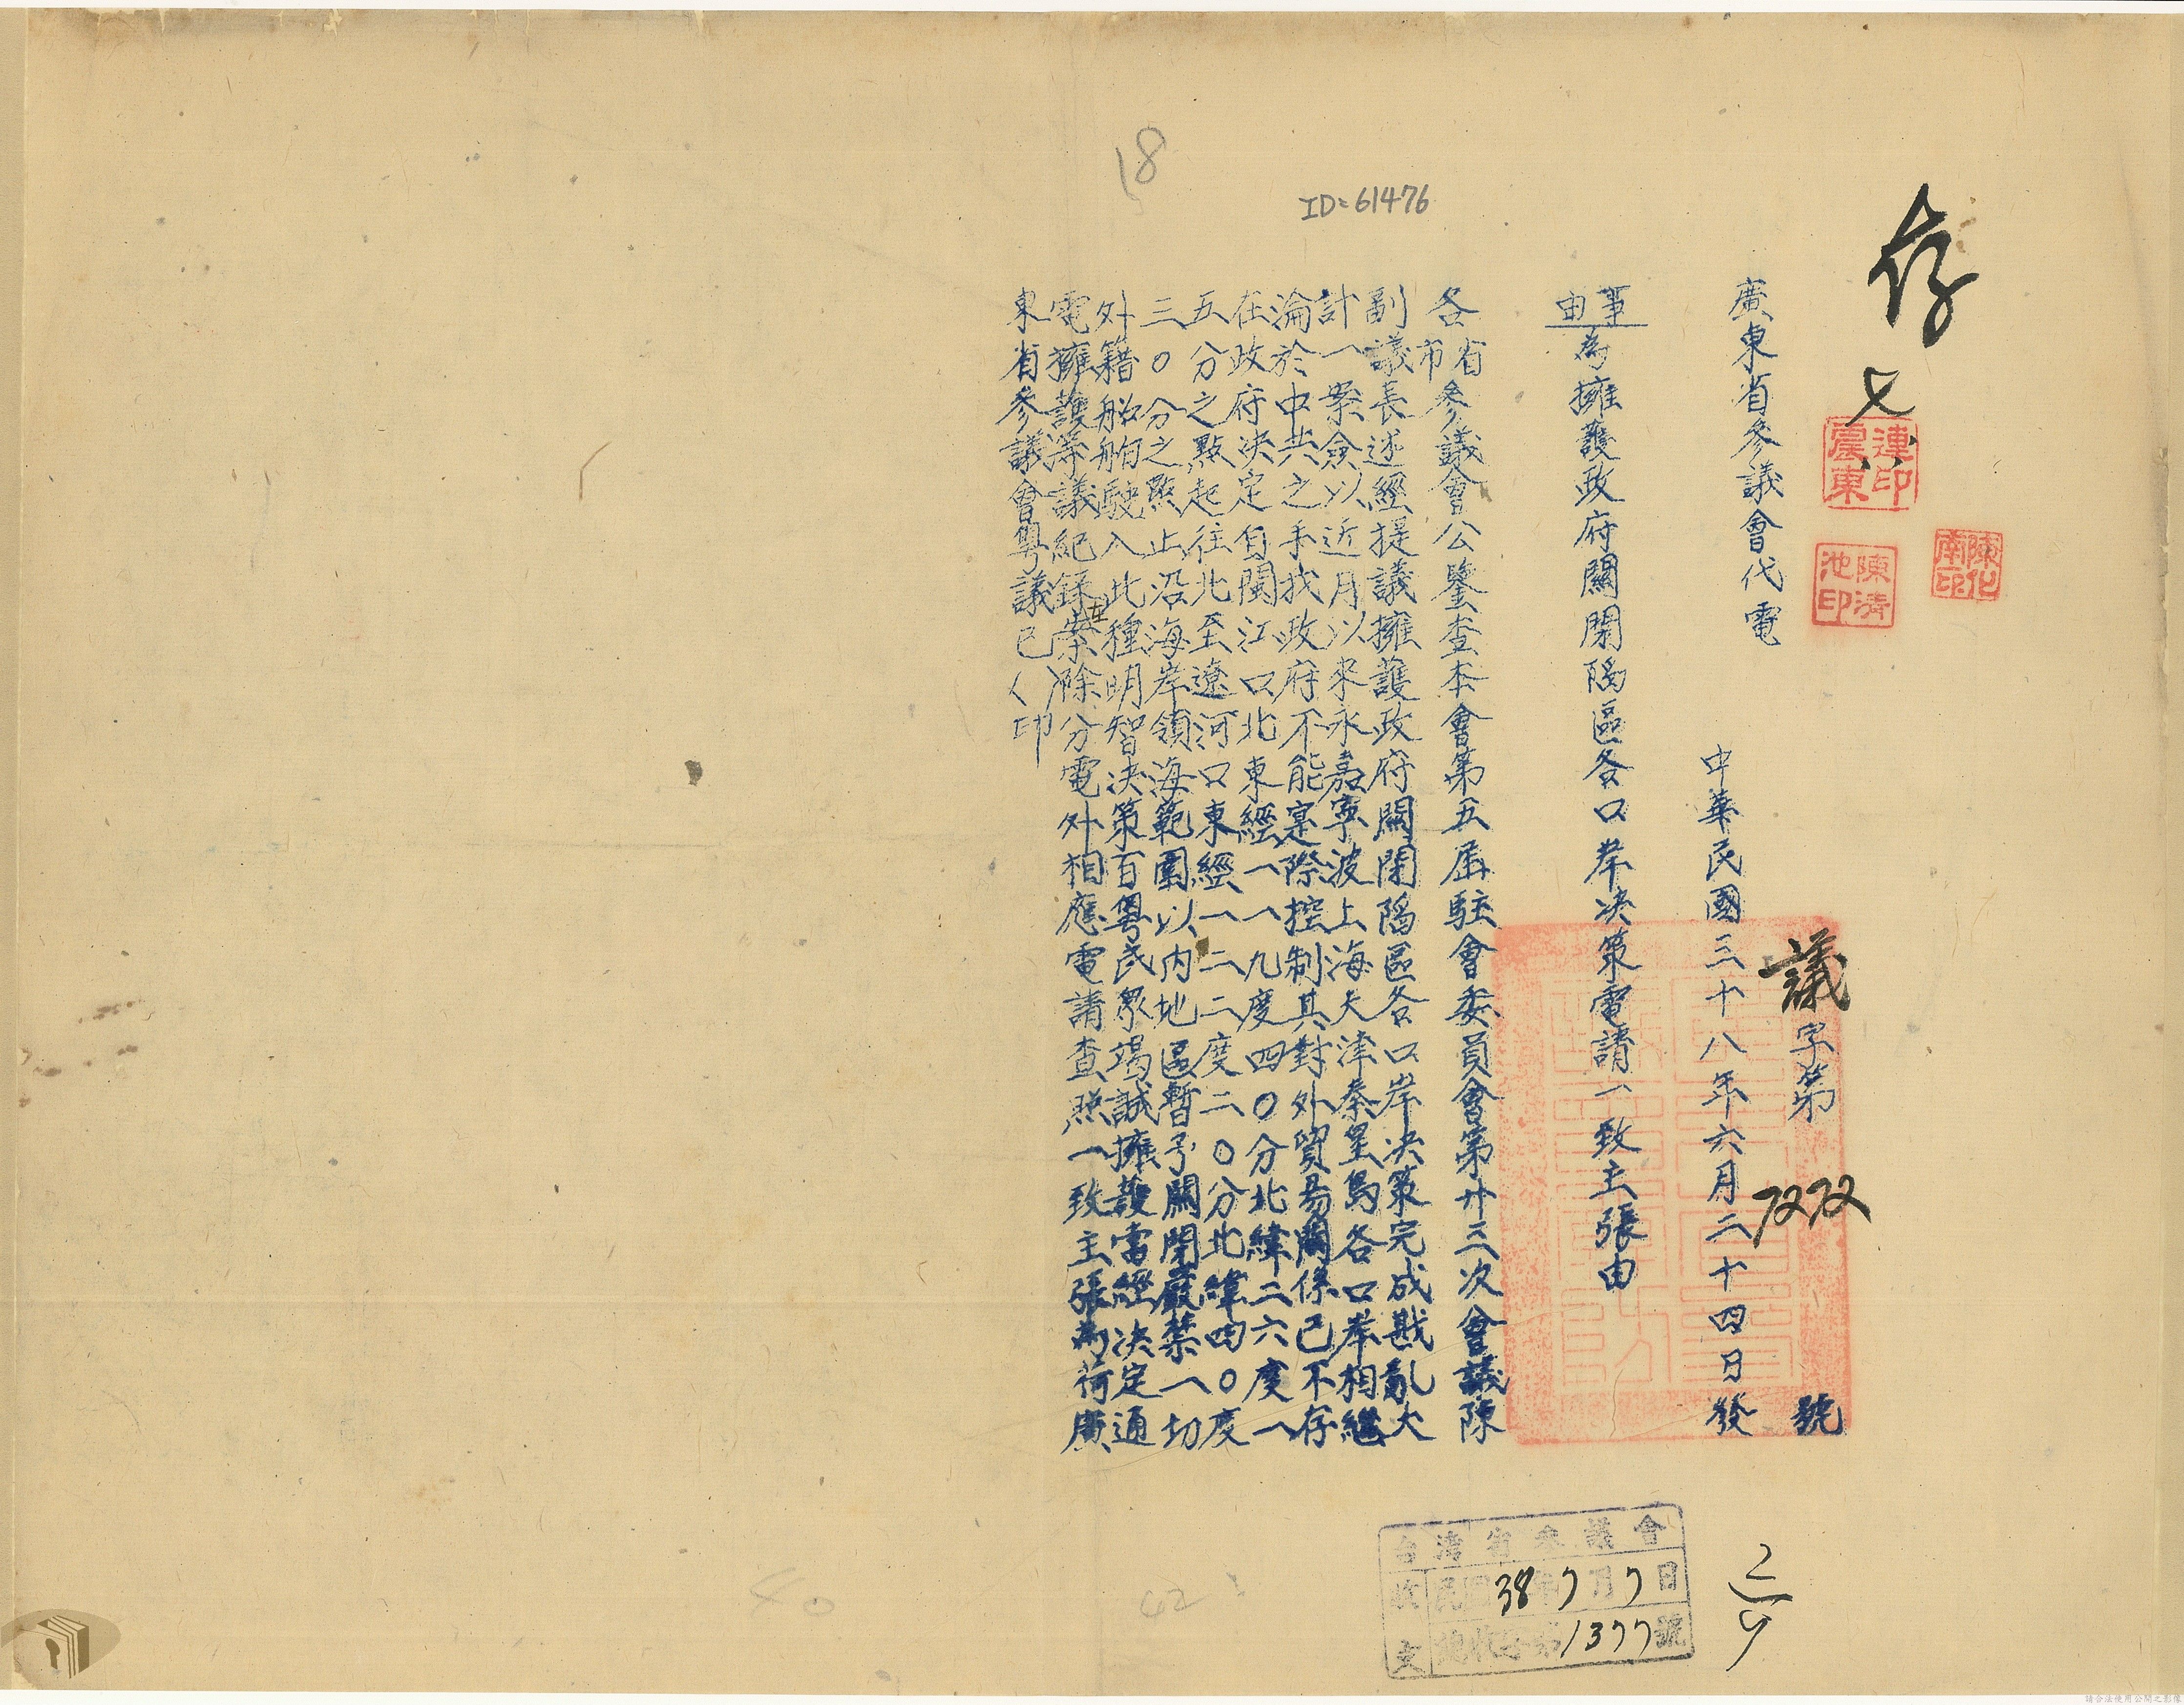 18
ID=61476
存
連震東印
陳清池印
廣東省參議會代電
議字第 號
中華民國三十八年六月二十四日發
事由
為擁護政府關閉陷區各口岸决策電請一致主張由
各省市參議會公鑒查本會第五届駐會委員會第廿三次會議陳
副議長述經提議擁護政府關閉陷區各口岸决策完成戡亂大
計一案僉以近月以來永嘉寧波上海天津秦皇島各口岸相繼
淪於中共之手我政府不能寔際控制其對外貿易關係已不存
在政府决定自閩江口北東經一一九度四〇分北緯二六度一
五分之點起往北至遼河口東經一二二度二〇分北緯四〇度
三〇分之點止沿海岸領海範圍以內地區暫予關閉嚴禁一切
外籍船舶駛入此種明智决策百粵民眾竭誠擁護當經决定通
電擁護等議紀錄在案除分電外相應電請查照一致主張為荷廣
東省參議會粵議已(印)
台灣省參議會
收文
民國38年7月7日
總收字第1377號
請合法使用公開之影像